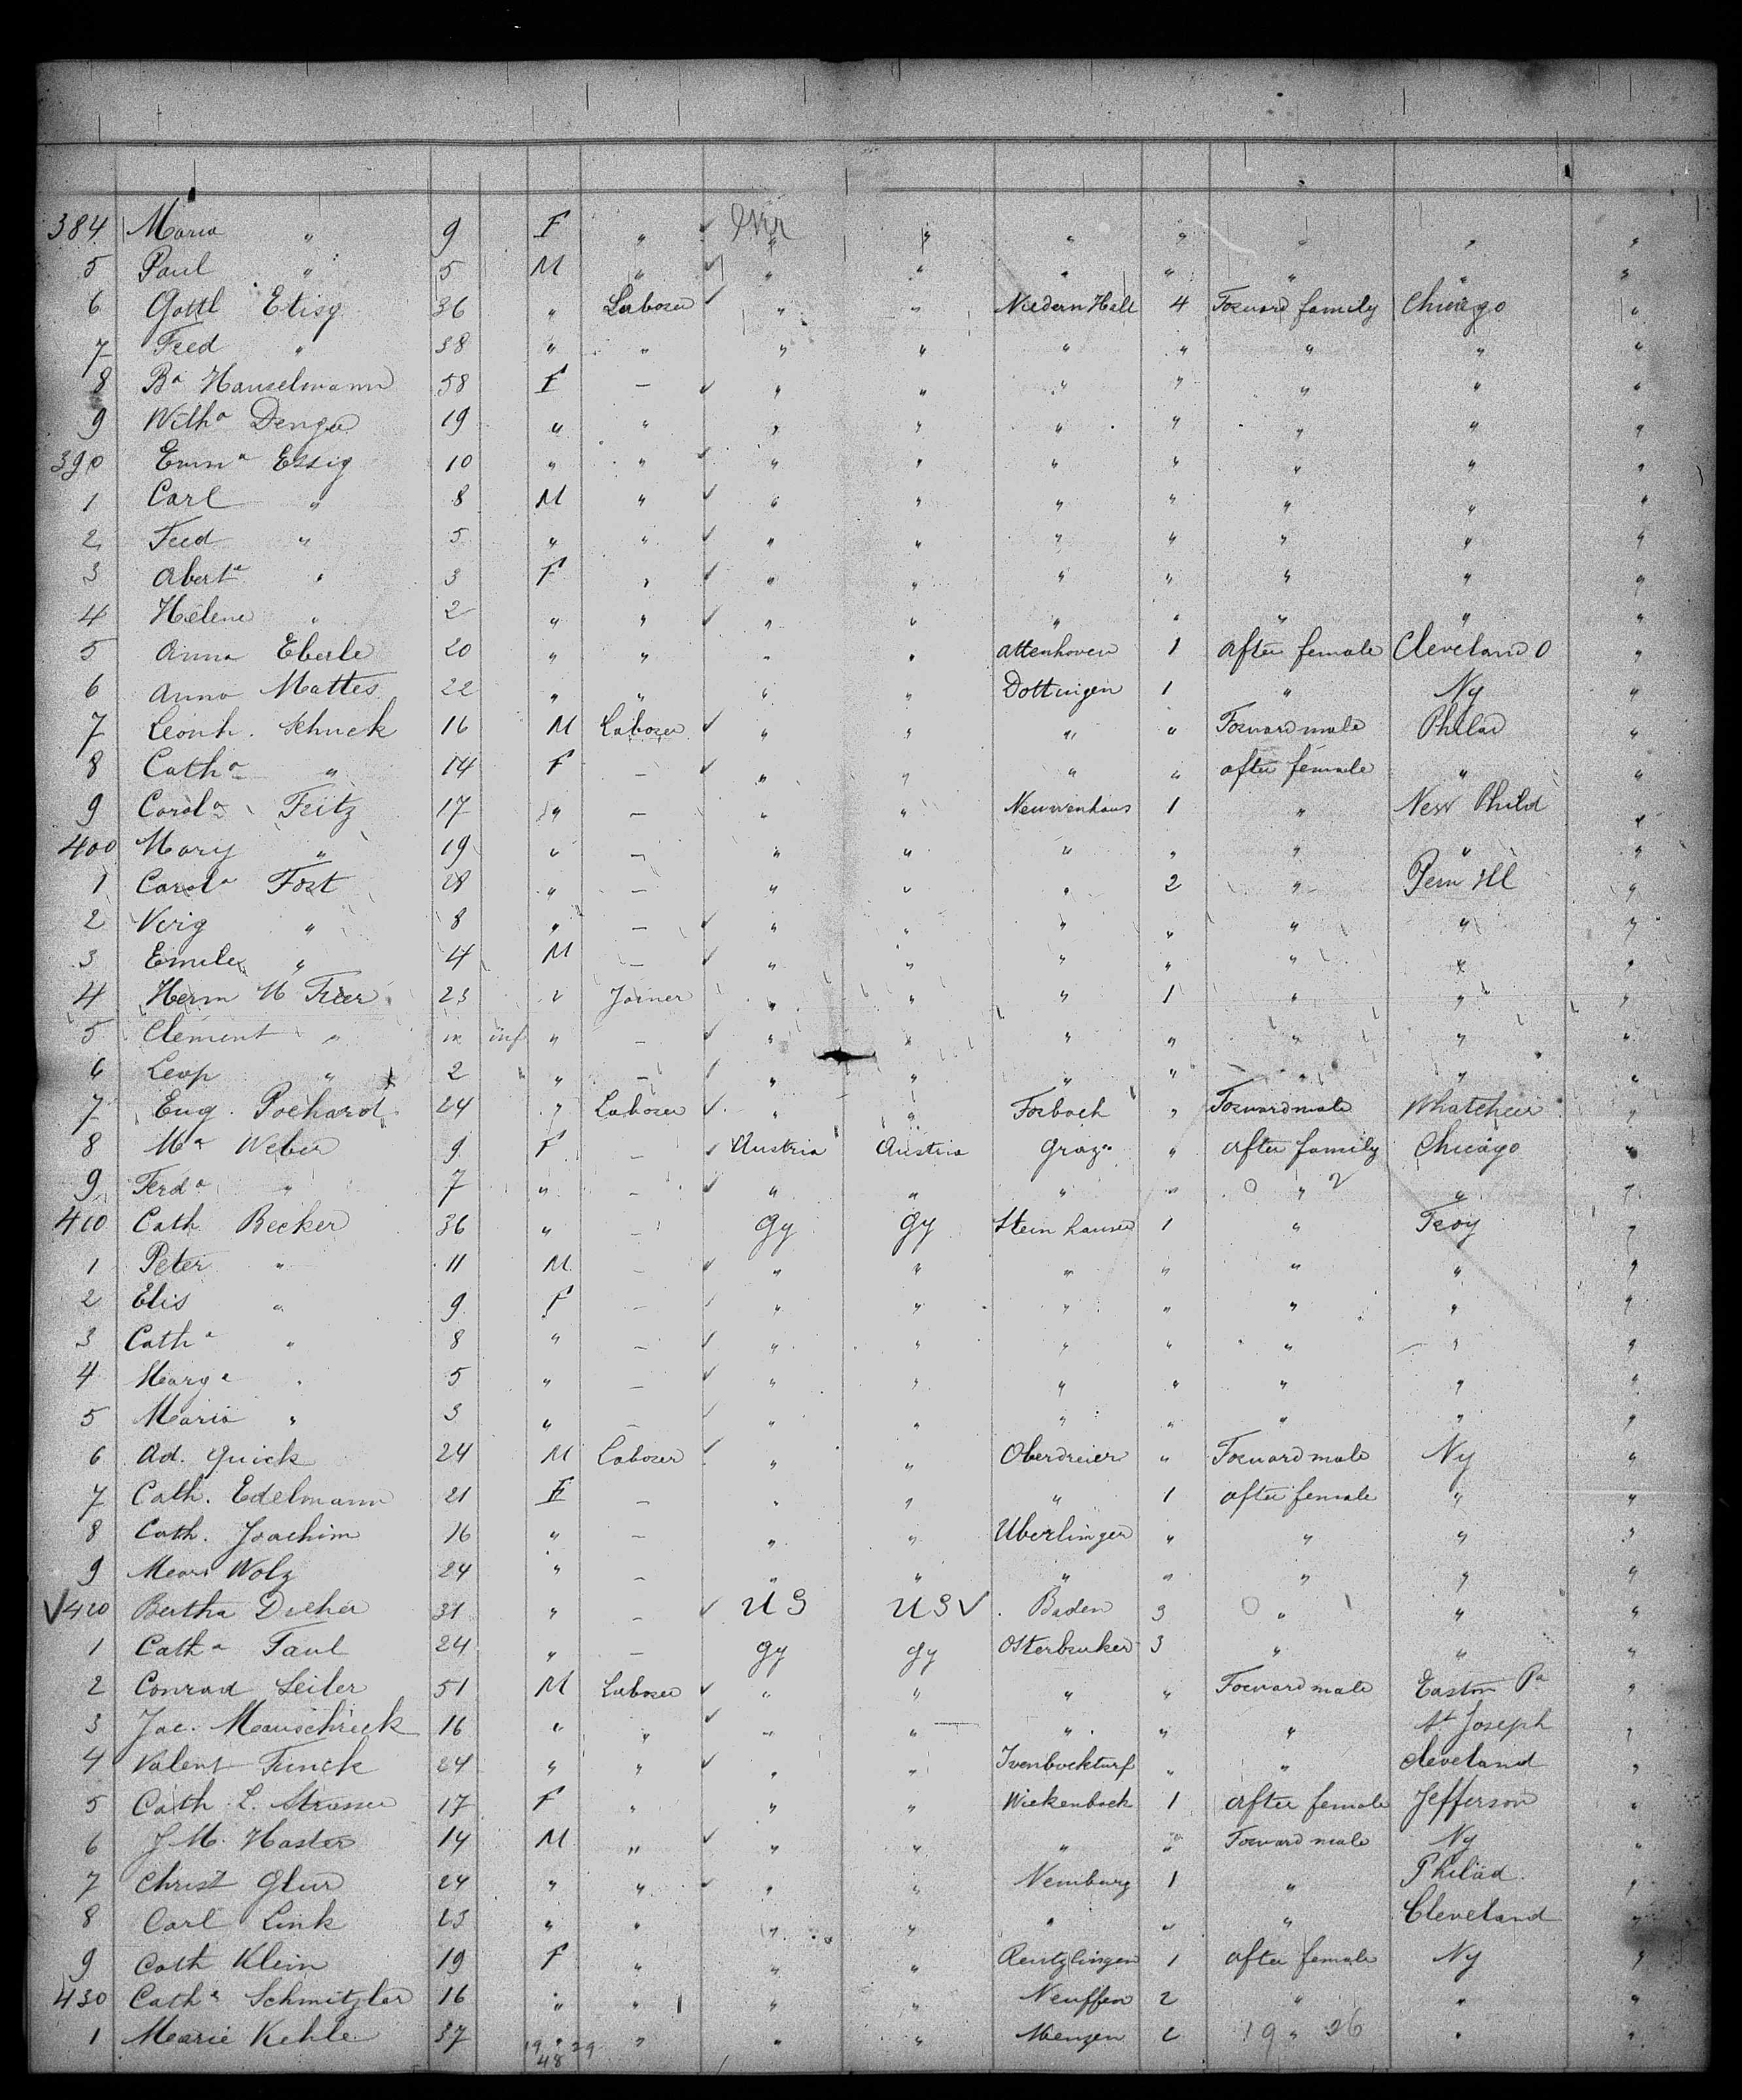 384 Maria " 9 F " " " " " " " "
5 Paul " 5 M " " " " " " " "
6 Gottl Etisy 36 " Laborer " " Niedern Hall 4 Forward family Chicago "
7 Fred " 38 " " " " " " " " "
8 Ba Hanselmann 58 F — " " " " " " "
9 Wilha Denga 19 " " " " " " " " "
390 Emma Essig 10 " " " " " " " " "
1 Carl " 8 M " " " " " " " "
2 Fred " 5 " " " " " " " " "
3 Alberta " 3 F " " " " " " " "
4 Helene " 2 " " " " " " " " "
5 Anna Eberle 20 " " " " Attenhoven 1 After female Cleveland O "
6 Anna Mattes 22 " " " " Dottingen 1 " Ny "
7 Leonh. Schuck 16 M Laborer " " " " Forward male Philad "
8 Catha " 14 F — " " " " after female " "
9 Carola Fritz 17 " — " " Neuwenhaus 1 " New Philad "
400 Mary " 19 " — " " " " " " "
1 Carola Fost 28 " — " " " 2 " Peru Ill "
2 Verig " 8 " — " " " " " " "
3 Emile " 4 M — " " " " " " "
4 Herm M Frier 23 " Joiner " " " 1 " " "
5 Clement " inf " — " " " " " " "
6 Leop " 2 " — " " " " " " "
7 Eug. Pochard 24 " Laborer " " Forbach " Forward male Whatcheer "
8 Ma Weber 9 F — Austria Austria Graz " After family Chicago "
9 Ferda " 7 " — " " " " " 2 " "
410 Cath Becker 36 " — Gy Gy Steinhausen 1 " Troy "
1 Peter " 11 M — " " " " " " "
2 Elis " 9 F — " " " " " " "
3 Catha " 8 " — " " " " " " "
4 Marge " 5 " — " " " " " " "
5 Maria " 3 " — " " " " " " "
6 Ad. Quick 24 M Laborer " " Oberdreier " Forward male Ny "
7 Cath. Edelmann 21 F — " " " 1 After female " "
8 Cath. Joachim 16 " — " " Uberlingen " " " "
9 Mari Wolz 24 " — " " " " " " "
√420 Bertha Dreher 31 " — U S U S √ Baden 3 " " "
1 Catha Faul 24 " — Gy Gy Osterburken 3 " " "
2 Conrad Seiler 51 M Laborer " " " " Forward male Easton Pa "
3 Jac. Mauschreck 16 " " " " " " " St Joseph "
4 Valent Funck 24 " " " " Ivenbockturf " " Cleveland "
5 Cath. L. Strasser 17 F " " " Wickenbach 1 After female Jefferson "
6 J. M. Haster 14 M " " " " " Forward male Ny "
7 Christ Glur 24 " " " " Nemburg 1 " Philad. "
8 Carl Link 23 " " " " " " " Cleveland "
9 Cath Klein 19 F " " " Reutzlingen 1 After female Ny "
430 Catha Schmitzler 16 " " " " Neuffen 2 " " "
1 Marie Kehle 37 " " " " Mengen 2 " " "
19 29 19 26
48